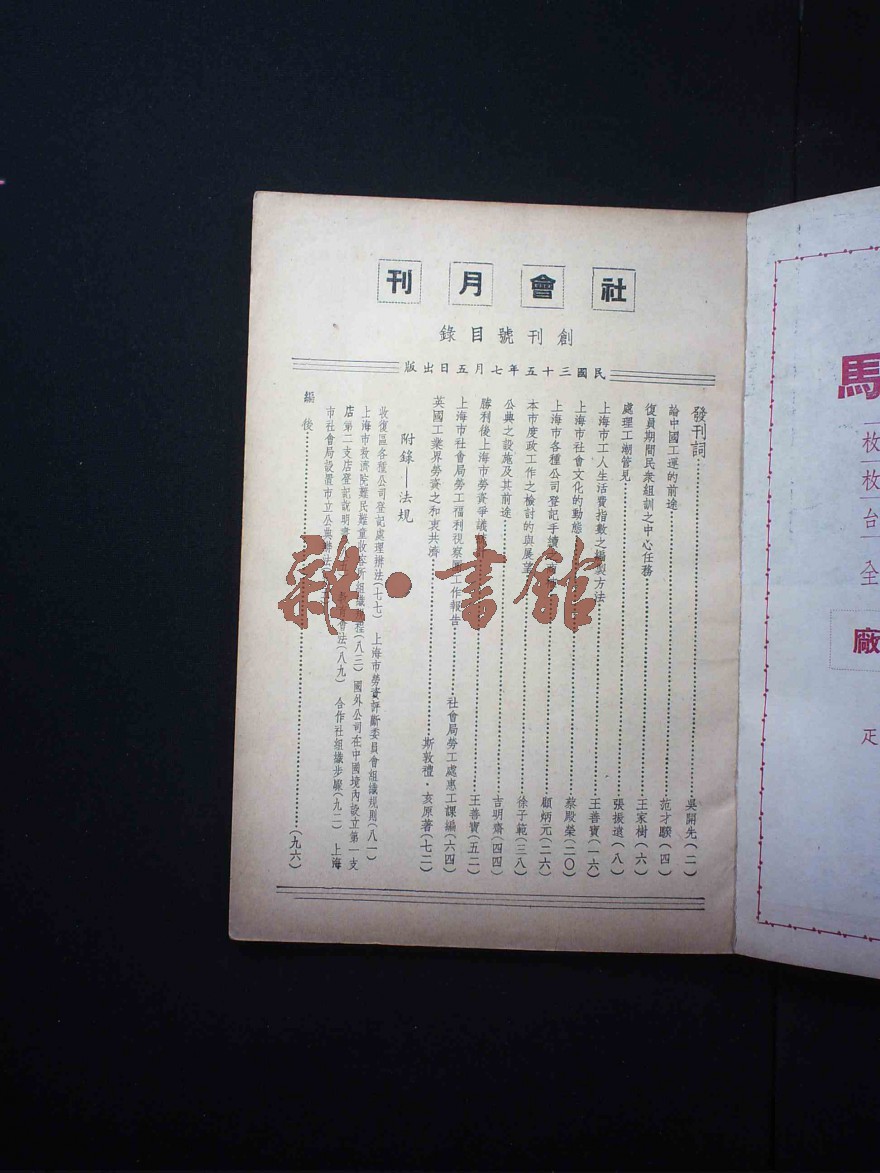 社會月刊
創刊號目錄
民國三十五年七月五日出版
發刊詞 吳開先(二)
論中國工運的前途 范才騤(四)
復員期間民衆組訓之中心任務 王家樹(六)
處理工潮管見 張振遠(八)
上海市工人生活費指數之編製方法 王善寶(一六)
上海市社會文化的動態 蔡殿榮(二〇)
上海市各種公司登記手續 顧炳元(二六)
本市度政工作之檢討的與展望 徐子範(三八)
公典之設施及其前途 吉明齋(四四)
勝利後上海市勞資爭議 王善寶(五二)
上海市社會局勞工福利視察團工作報告 社會局勞工處惠工課編(六四)
英國工業界勞資之和衷共濟 斯敦禮·亥原著(七二)
附錄—法規
收復區各種公司登記處理辦法(七七) 上海市勞資評斷委員會組織規則(八一)
上海市救濟院難民難童收容所組織規程(八三) 國外公司在中國境內設立第一支
店第二支店登記說明 教育會法(八九) 合作社組織步驟(九二) 上海
市社會局設置市立公典辦法
編後(九六)
雜·書館
馬
枚枚台全
廠
疋